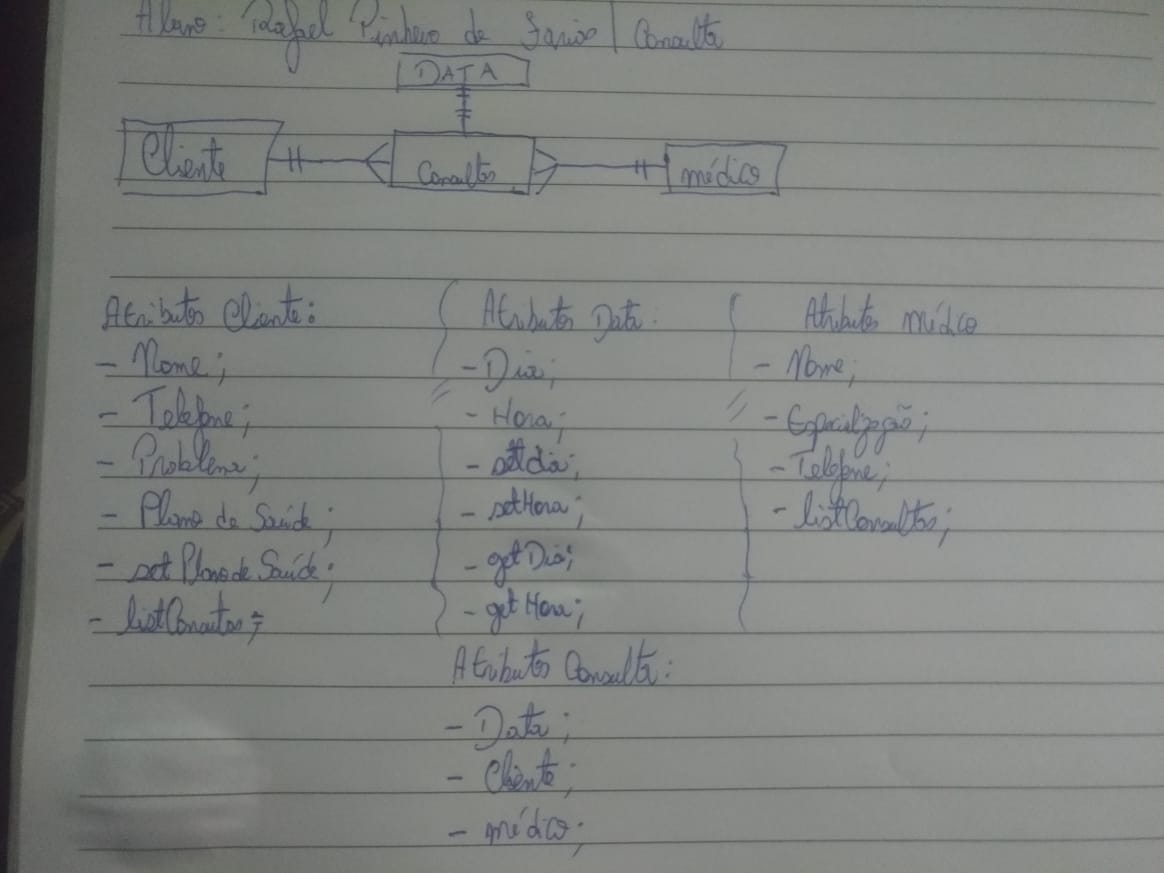 Aluno: Rafael Pinheiro de Farias | Consulta
DATA
Cliente
Consultas
médico
Atributos Cliente:
- Nome;
- Telefone;
- Problema;
- Plano de Saúde;
- set Plano de Saúde;
- listConsultas;
Atributos Data:
- Dia;
- Hora;
- setdia;
- setHora;
- getDia;
- getHora;
Atributos médico
- Nome;
- Especialização;
- Telefone;
- listConsultas;
Atributos Consulta:
- Data;
- Cliente;
- médico;